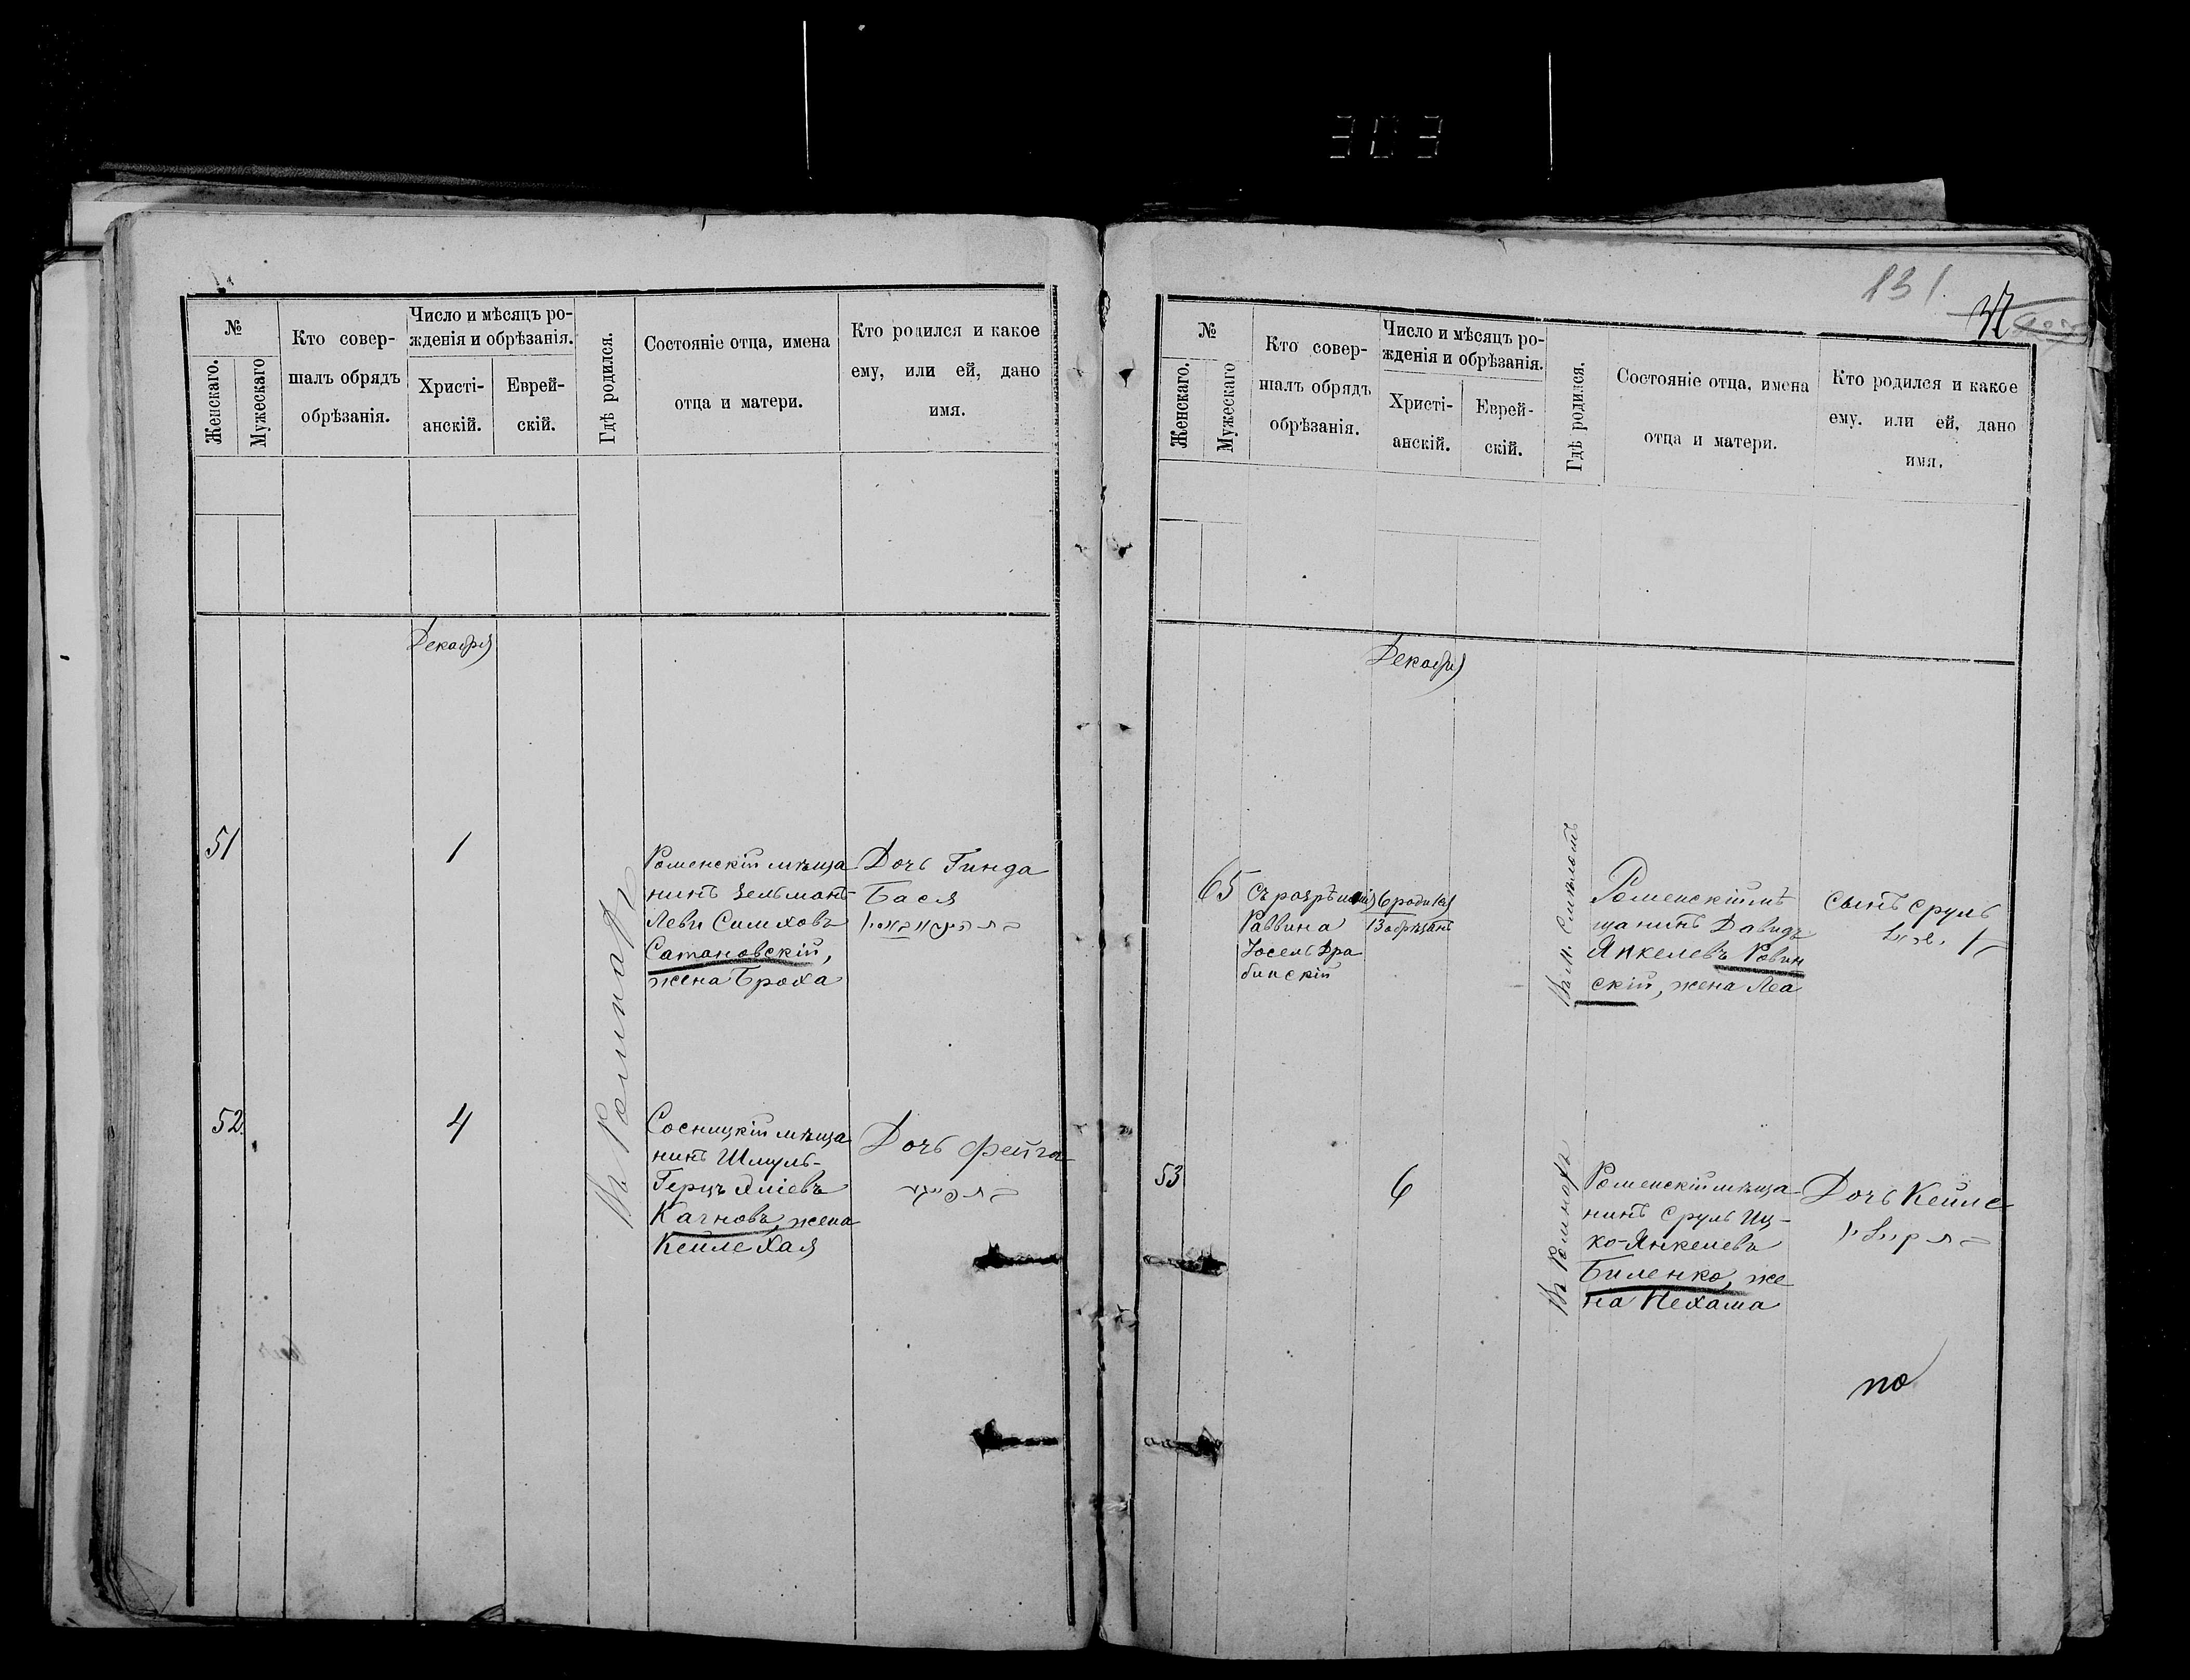 303
№
Женскаго.
Мужескаго
Кто совер-
шалъ обрядъ
обрѣзанія.
Число и мѣсяцъ ро-
жденія и обрѣзанія.
Христі-
анскій.
Еврей-
скій.
Гдѣ родился.
Состояніе отца, имена
отца и матери.
Кто родился и какое
ему, или ей, дано
имя.
Декабря
51
1
Въ Ромнахъ
Роменскій мѣща
нинъ Зельманъ-
Леви Симховъ
Сатановскій,
жена Броха
Дочь Гинда
Бася
52.
4
Сосницкій мѣща
нинъ Шмуль-
Герцъ
Качновъ, жена
Кейле Хая
Дочь Фейга
131
№
Женскаго.
Мужескаго
Кто совер-
шалъ обрядъ
обрѣзанія.
Число и мѣсяцъ ро-
жденія и обрѣзанія.
Христі-
анскій.
Еврей-
скій.
Гдѣ родился.
Состояніе отца, имена
отца и матери.
Кто родился и какое
ему. или ей, дано
имя.
Декабря
65
Съ разрѣшенія
Раввина
Іосель Дра
бинскій
6 родился
13 обрѣзанъ
Въ м. Смѣломъ
Роменскій мѣ
щанинъ Давидъ
Янкелевъ Ровин
скій, жена Леа
Сынъ Сруль
53
6
Въ Ромнахъ
Роменскій мѣща
нинъ Сруль Иц-
ко-Янкелевъ
Биленко, же
на Нехама
Дочь Кейле
по